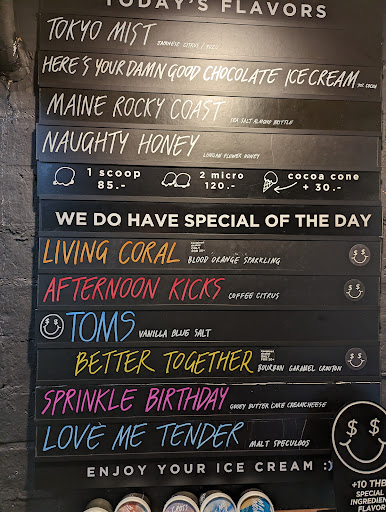 TODAY'S FLAVORS
TOKYO MIST JAPANESE CITRUS / YUZU
HERE'S YOUR DAMN GOOD CHOCOLATE ICE CREAM 70% COCOA
MAINE ROCKY COAST SEA SALT ALMOND BRITTLE
NAUGHTY HONEY LONGAN FLOWER HONEY
1 scoop 2 micro cocoa cone
85.- 120.- + 30.-
WE DO HAVE SPECIAL OF THE DAY
LIVING CORAL BLOOD ORANGE SPARKLING
AFTERNOON KICKS COFFEE CITRUS
TOMS VANILLA BLUE SALT
BETTER TOGETHER BOURBON CARAMEL CROUTON
SPRINKLE BIRTHDAY GOOEY BUTTER CAKE CREAMCHEESE
LOVE ME TENDER MALT SPECULOOS
ENJOY YOUR ICE CREAM :)
$ $
+10 THB
SPECIAL
INGREDIEN
FLAVOR